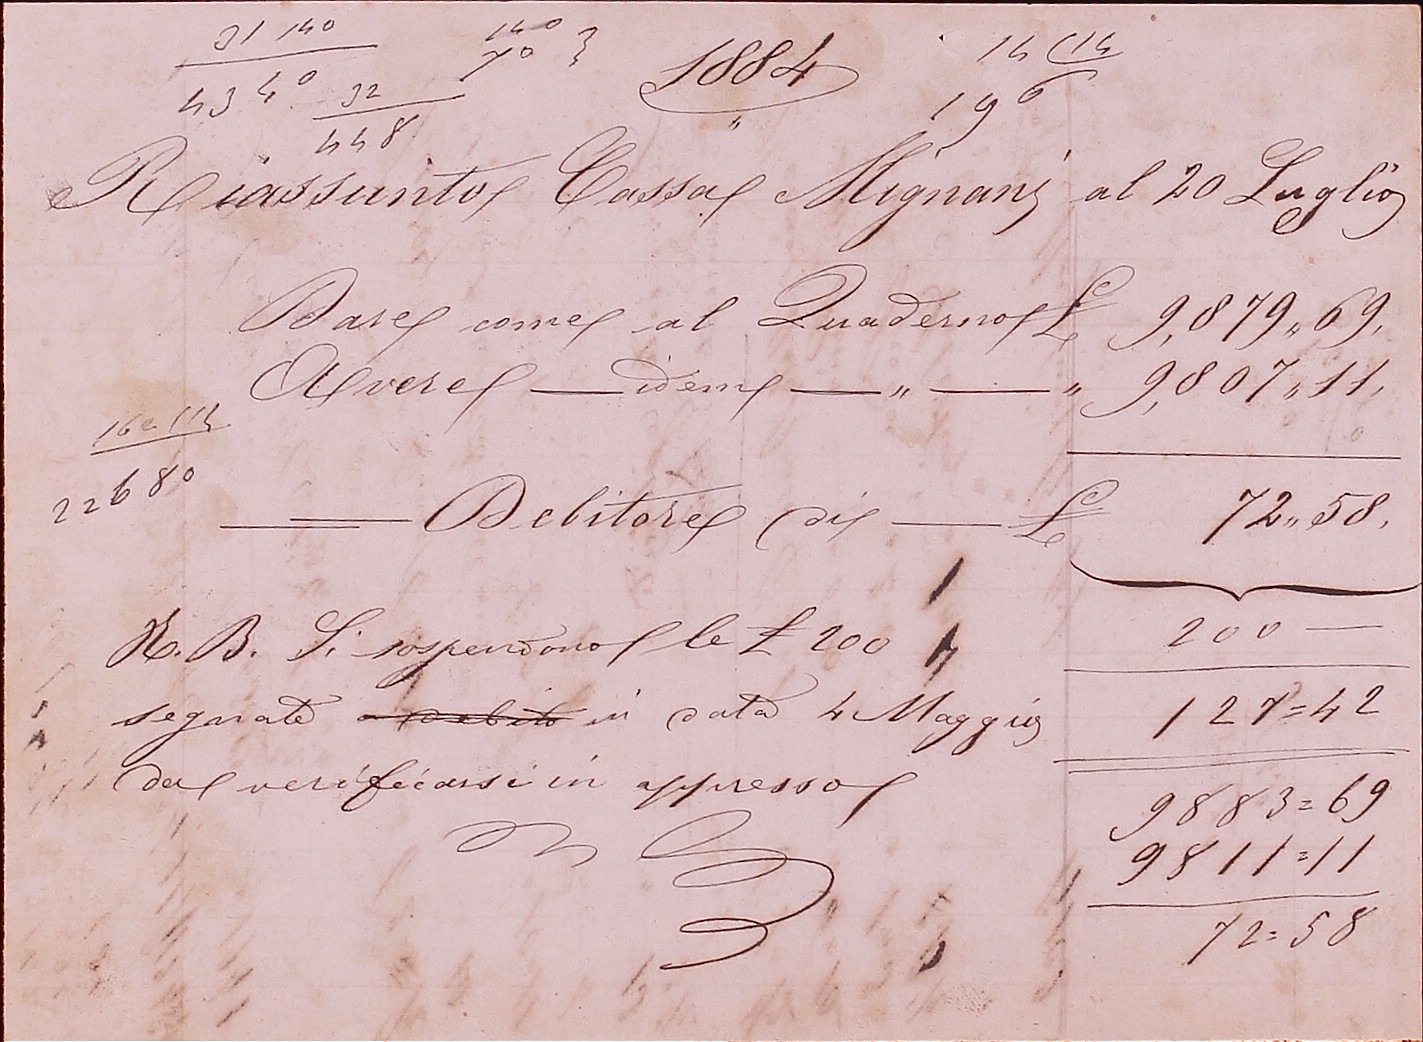 31 140
4340
32
448
140
70
1884
14 14
196
Riassunto Cassa Mignani al 20 Luglio
Dare come al Quaderno £ 9,879,,69,
Avere — idem — ,, — ,, 9,807,,11,
162 114
22680
Debitore di — £ 72,,58,
200 —
N. B. Si sospendono le £ 200
segnate a debito in data 4 Maggio
da verificarsi in appresso
127=42
9883=69
9811=11
72=58